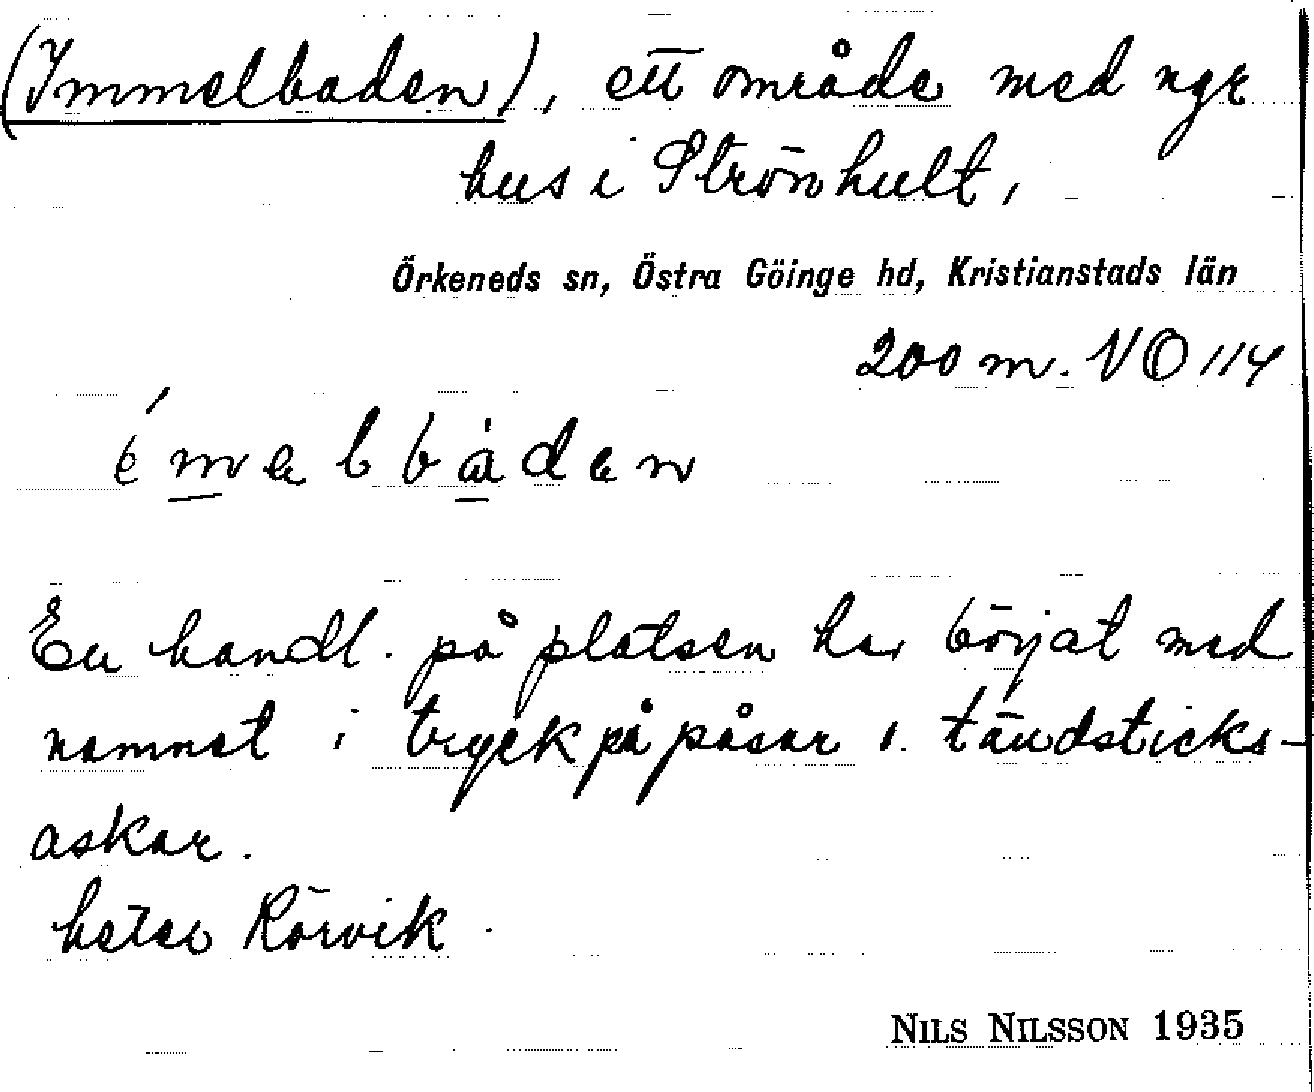 (Immelbaden), ett område med ngr
hus i Strönhult,
Örkeneds sn, Östra Göinge hd, Kristianstads län
200 m. NO 114
émelbåden
En handl. på platsen har börjat med
namnet i tryck på påsar o. tändsticks-
askar.
heter Rörvik.
NILS NILSSON 1935